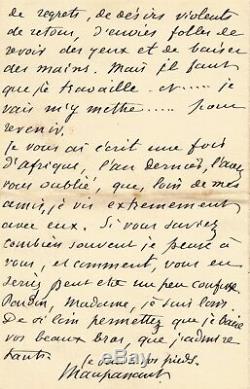 de regrets, de désirs violents
de retour, d'envies folles de
revoir des yeux et de baiser
des mains. Mais il faut
que je travaille — et..... je
vais m'y mettre..... pour
revenir.
Je vous ai écrit une fois
d'Afrique, l'an dernier, l'avez
vous oublié, que, loin de mes
amis, je vis extrêmement
avec eux. Si vous saviez
combien souvent je pense à
vous, et comment, vous en
seriez peut être un peu confuse
Pardon, Madame, je suis loin.
De si loin permettez que je baise
vos beaux bras, que j'admire
tant.
Je suis à vos pieds.
Maupassant